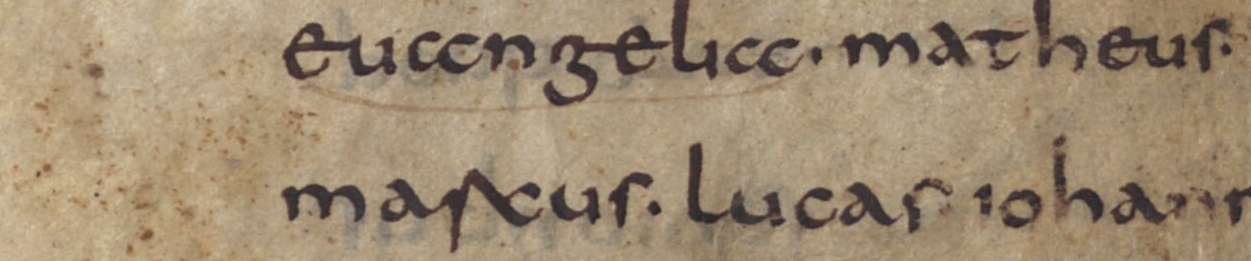 euangelia. matheus.
marcus. lucas iohann